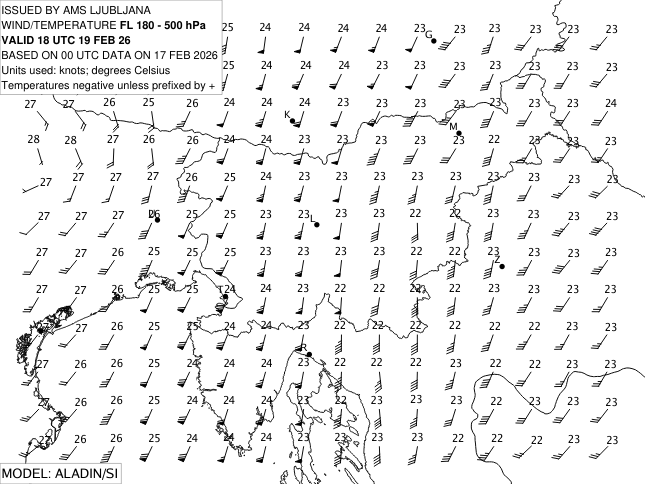 ISSUED BY AMS LJUBLJANA
WIND/TEMPERATURE FL 180 - 500 hPa
VALID 18 UTC 19 FEB 26
BASED ON 00 UTC DATA ON 17 FEB 2026
Units used: knots; degrees Celsius
Temperatures negative unless prefixed by +
25 24 24 24 24 23 23 23 23 23 23
G
25 24 24 24 23 23 23 23 23 23 23
27 27 26 25 25 24 24 24 23 23 23 23 23 23 23 24
K M
28 28 27 26 26 24 24 23 23 23 23 23 22 23 23 23
27 27 27 27 26 25 24 23 23 23 23 23 23 23 23 23
27 27 27 26 25 25 23 23 23 23 22 22 23 23 23 23
L
27 27 26 25 25 25 23 23 23 23 22 22 23 23 23 23
Z
27 27 26 25 25 24 24 23 22 22 22 22 22 23 23 23
27 27 26 25 25 24 24 23 22 22 22 22 22 22 23 23
R
27 26 26 25 24 24 24 23 22 22 22 22 23 22 23 23
27 26 26 25 25 24 24 23 22 23 23 23 22 22 23 23
27 26 26 25 24 24 24 23 23 23 23 22 22 22 23 23
MODEL: ALADIN/SI